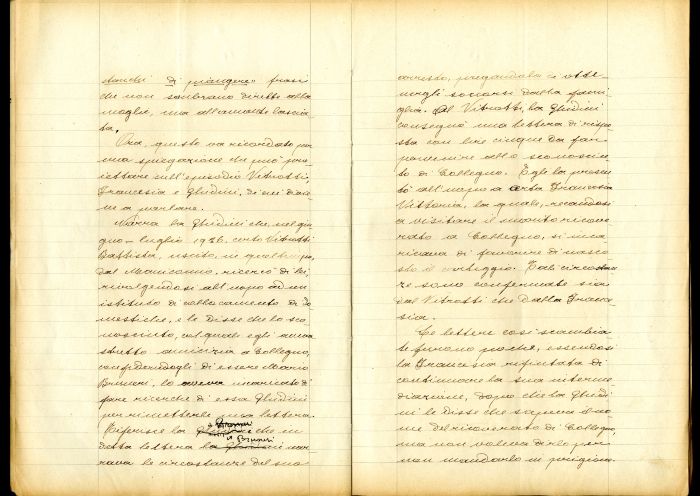 stanchi di piangere" frasi
che non sembrano dirette alla
moglie, ma all'amante lascia-
ta.
Ora, questo va ricordato per
una spiegazione che può pro-
iettare sull'episodio Vitrotti,
Francesia e Ghidini, di cui dia-
mo a parlare.
Narra la Ghidini che nel giu-
gno - luglio 1926, certo Vitrotti
Battista, uscito, in quell'epoca,
dal Manicomio, ricercò di lei
rivolgendosi all'uopo ad un
istituto di collocamento di do-
mestiche, e le disse che lo sco-
nosciuto, col quale egli aveva
stretto amicizia a Collegno,
confidendogli di essere Mario
Bruneri, lo aveva incaricato di
fare ricerche di essa Ghidini
per rimetterle una lettera.
Riferisce la Ghidini che in
il Bruneri
detta lettera la Ghidini nar-
il Bruneri
rava le circostanze del suo
arresto, pregandola a otte-
nergli soccorsi dalla fami-
glia. Al Vitrotti, la Ghidini
consegnò una lettera di rispo-
sta con lire cinque da far
pervenire allo sconosciu-
to di Collegno. Egli la presen-
tò all'uopo a certa Francesia
Vittoria, la quale, recandosi
a visitare il marito ricove-
rato a Collegno, si inca-
ricava di favorire di nasco-
sto il carteggio. Tali circostan-
ze sono confermate sia
dal Vitrotti che dalla France-
sia.
Le lettere così scambia-
te furono poche, essendosi
la Francesia rifiutata di
continuare la sua interme-
diazione, dopo che la Ghidi-
ni le disse che sapeva il no-
me del ricoverato di Collegno,
ma non voleva dirlo per
non mandarlo in prigione.